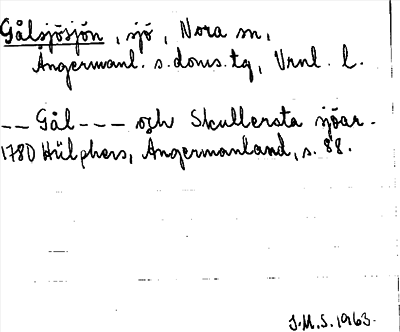 Gålsjösjön, sjö, Nora sn,
Ångermanl. s. doms. tg, Vrnl. l.
-- Gål --- och Skullersta sjöar.
1780 Hülphers, Ångermanland, s. 88.
J.M.S. 1963.